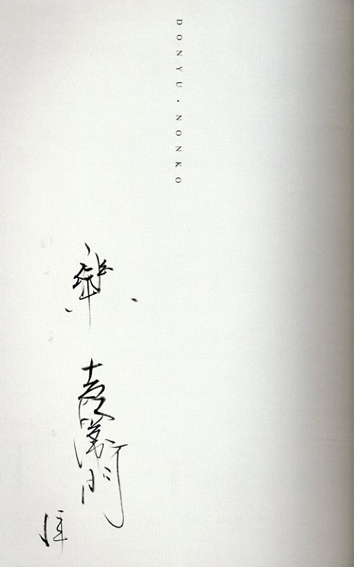 DONYU・NONKO
樂 吉左衞門
拝